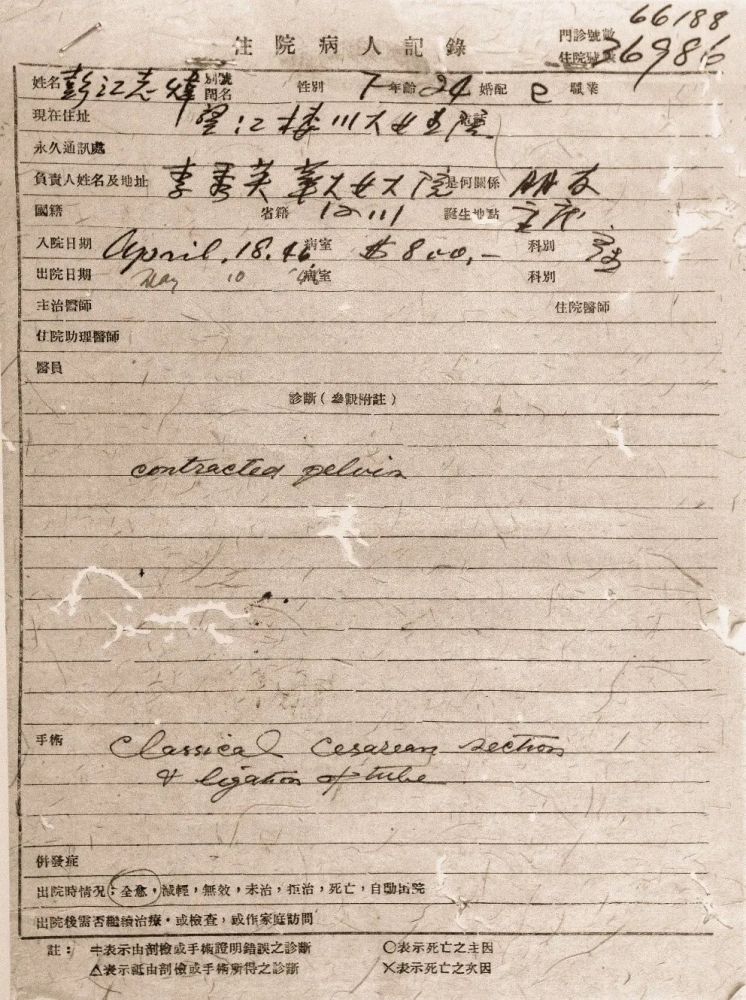 66188
門診號數
住院病人記錄
住院號數 369816
姓名 彭江志煒 別號 閨名 性別 下 年齡 24 婚配 e 職業
現在住址 望江樓川大女生院
永久通訊處
負責人姓名及地址 李秀英 華大女大院 是何關係 朋友
國籍 省籍 四川 誕生地點
入院日期 April. 18. 46 病室 $800.— 科別
出院日期 May 10 病室 科別
主治醫師 住院醫師
住院助理醫師
醫員
診斷(參觀附註)
contracted pelvis
手術 Classical Cesarean section
& ligation of tube
併發症
出院時情况:全愈,減輕,無效,未治,拒治,死亡,自動出院
出院後需否繼續治療,或檢查,或作家庭訪問
註: 表示由剖檢或手術證明錯誤之診斷 ○表示死亡之主因
△表示祗由剖檢或手術所得之診斷 ×表示死亡之次因